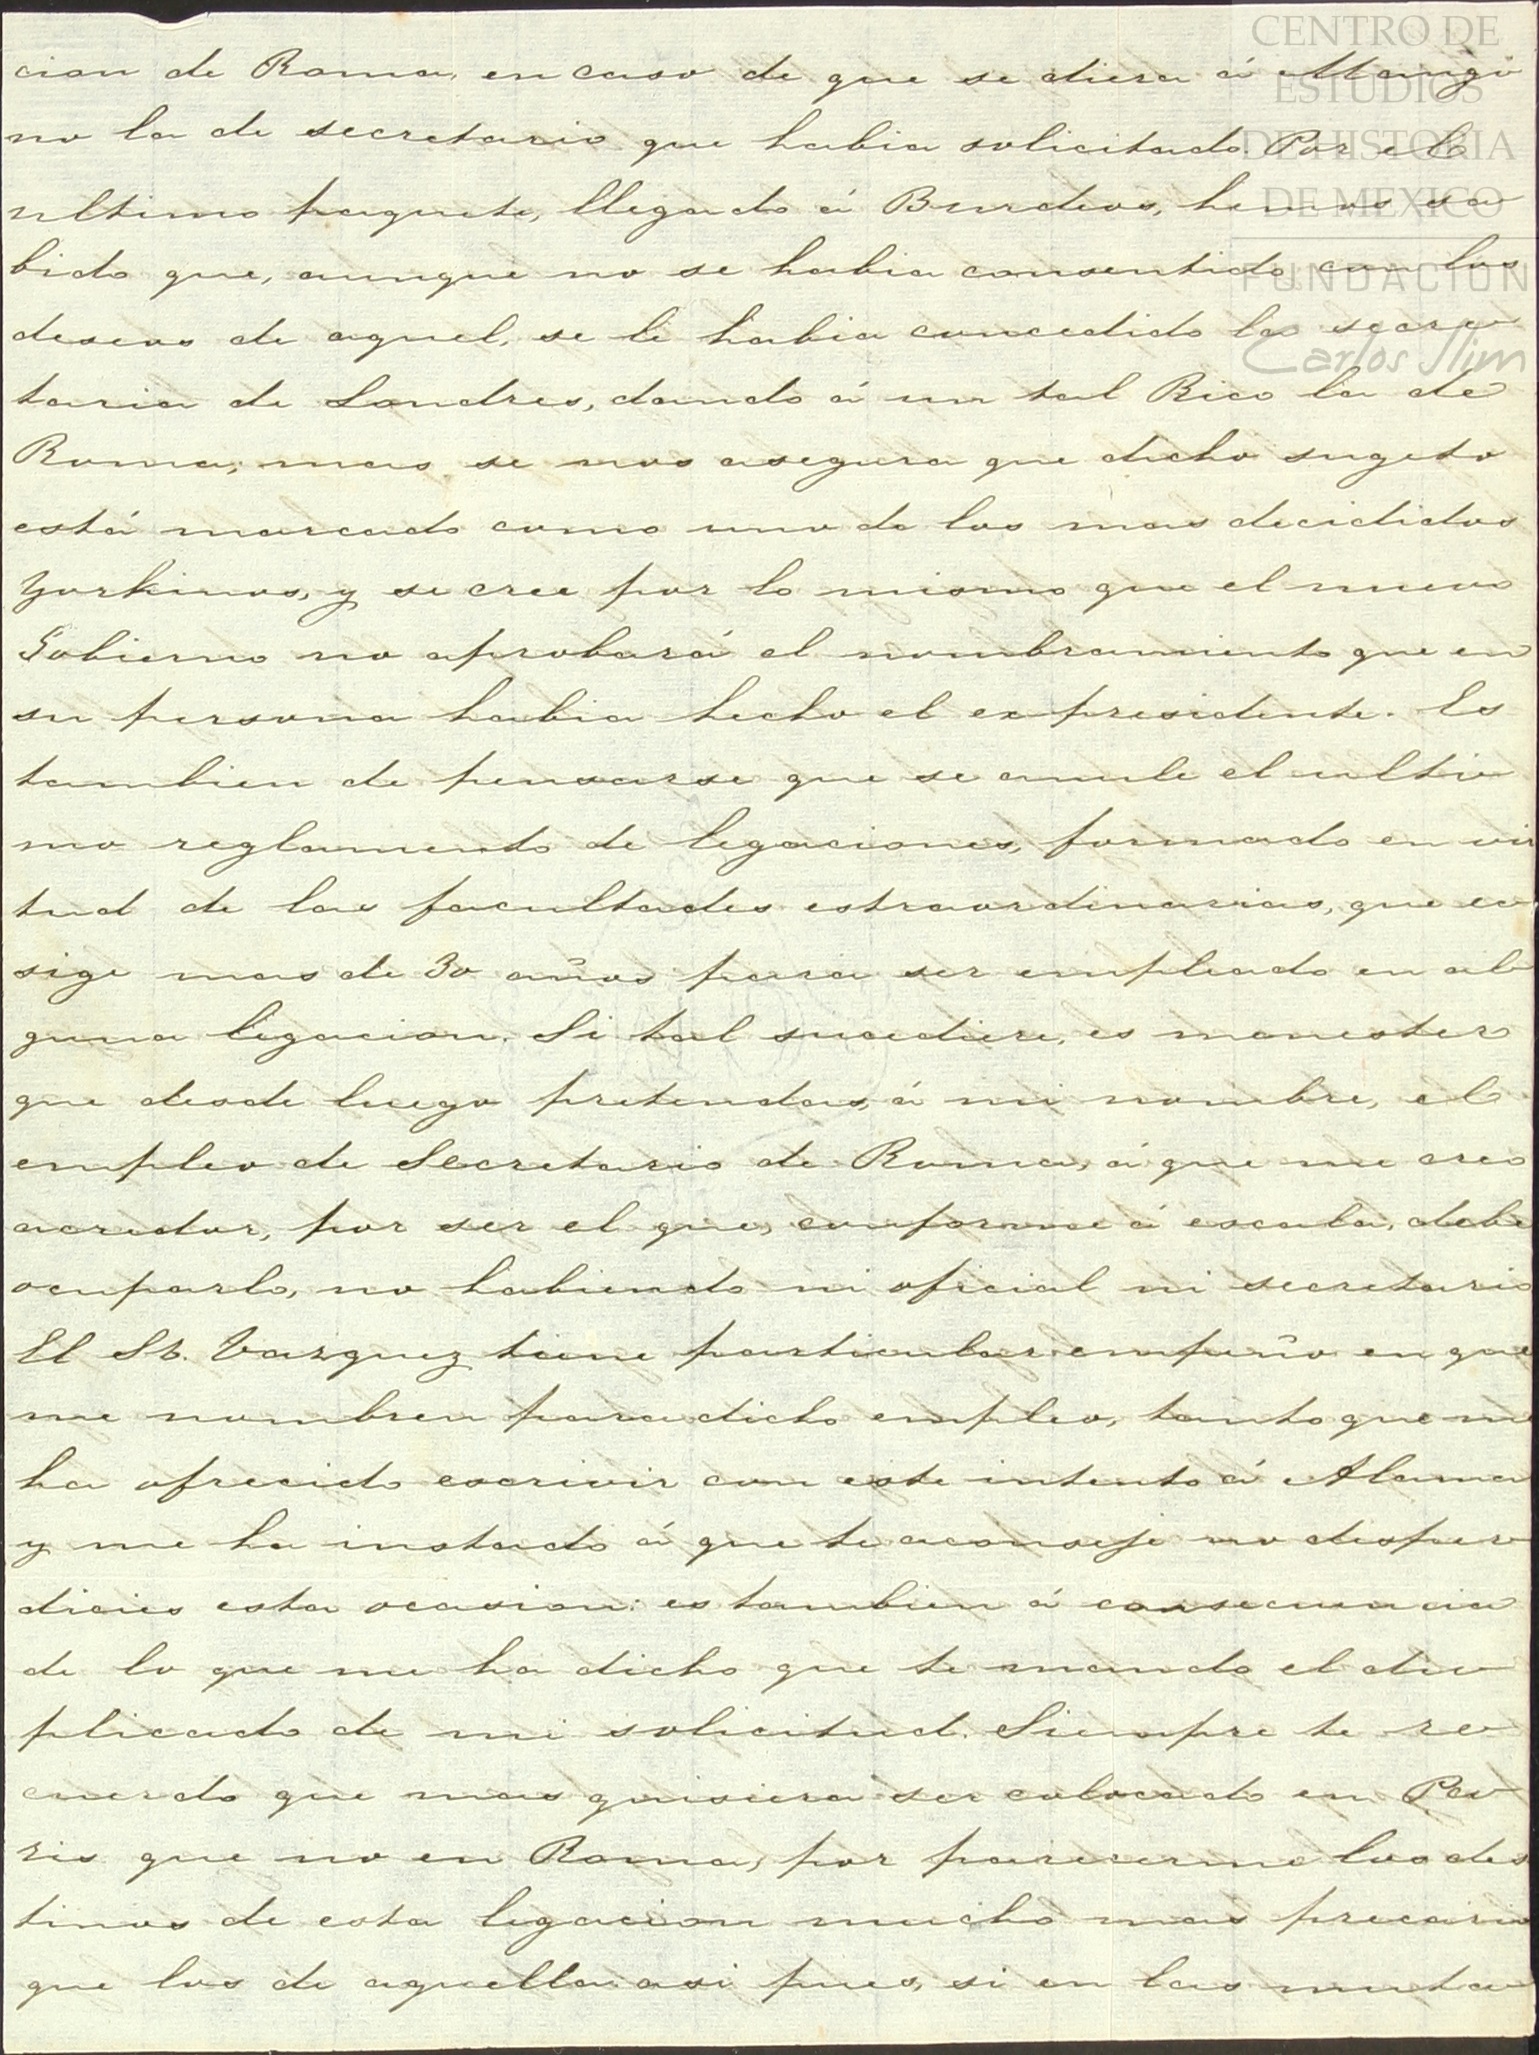 CENTRO DE
ESTUDIOS
DE HISTORIA
DE MEXICO
FUNDACION
Carlos Slim
cion de Roma, en caso de que se diera á Mangi
no la de secretario que habia solicitado. Por el
ultimo paquete, llegado á Burdeos, hemos sa
bido que, aunque no se habia consentido con los
deseos de aquel, se le habia concedido la secre
taria de Londres, dando á un tal Rico la de
Roma; mas se nos asegura que dicho sugeto
está marcado como uno de los mas decididos
Yorkinos, y se cree por lo mismo que el nuevo
Gobierno no aprobará el nombramiento que en
su persona habia hecho el ex presidente. Es
tambien de pensarse que se anule el ulti
mo reglamento de legaciones, formado en vir
tud de las facultades estraordinarias, que ec
sige mas de 30 años para ser empleado en al
guna legacion. Si tal sucediere, es menester
que desde luego pretendas, á mi nombre, el
empleo de Secretario de Roma, á que me creo
acredor, por ser el que, conforme á escala, debe
ocuparlo, no habiendo ni oficial ni secretario
El Sr. Vazquez tiene particular empeño en que
me nombren para dicho empleo, tanto que me
ha ofrecido escrivir con este intento á Alama
y me ha instado á que te aconseje no desper
dicies esta ocasion: es tambien á consecuencia
de lo que me ha dicho que te mando el du
plicado de mi solicitud. Siempre te re
cuerdo que mas quisiera ser colocado en Pa
ris que no en Roma, por parecerme los des
tinos de esta legacion mucho mas precario
que los de aquella: asi pues, si en las muta